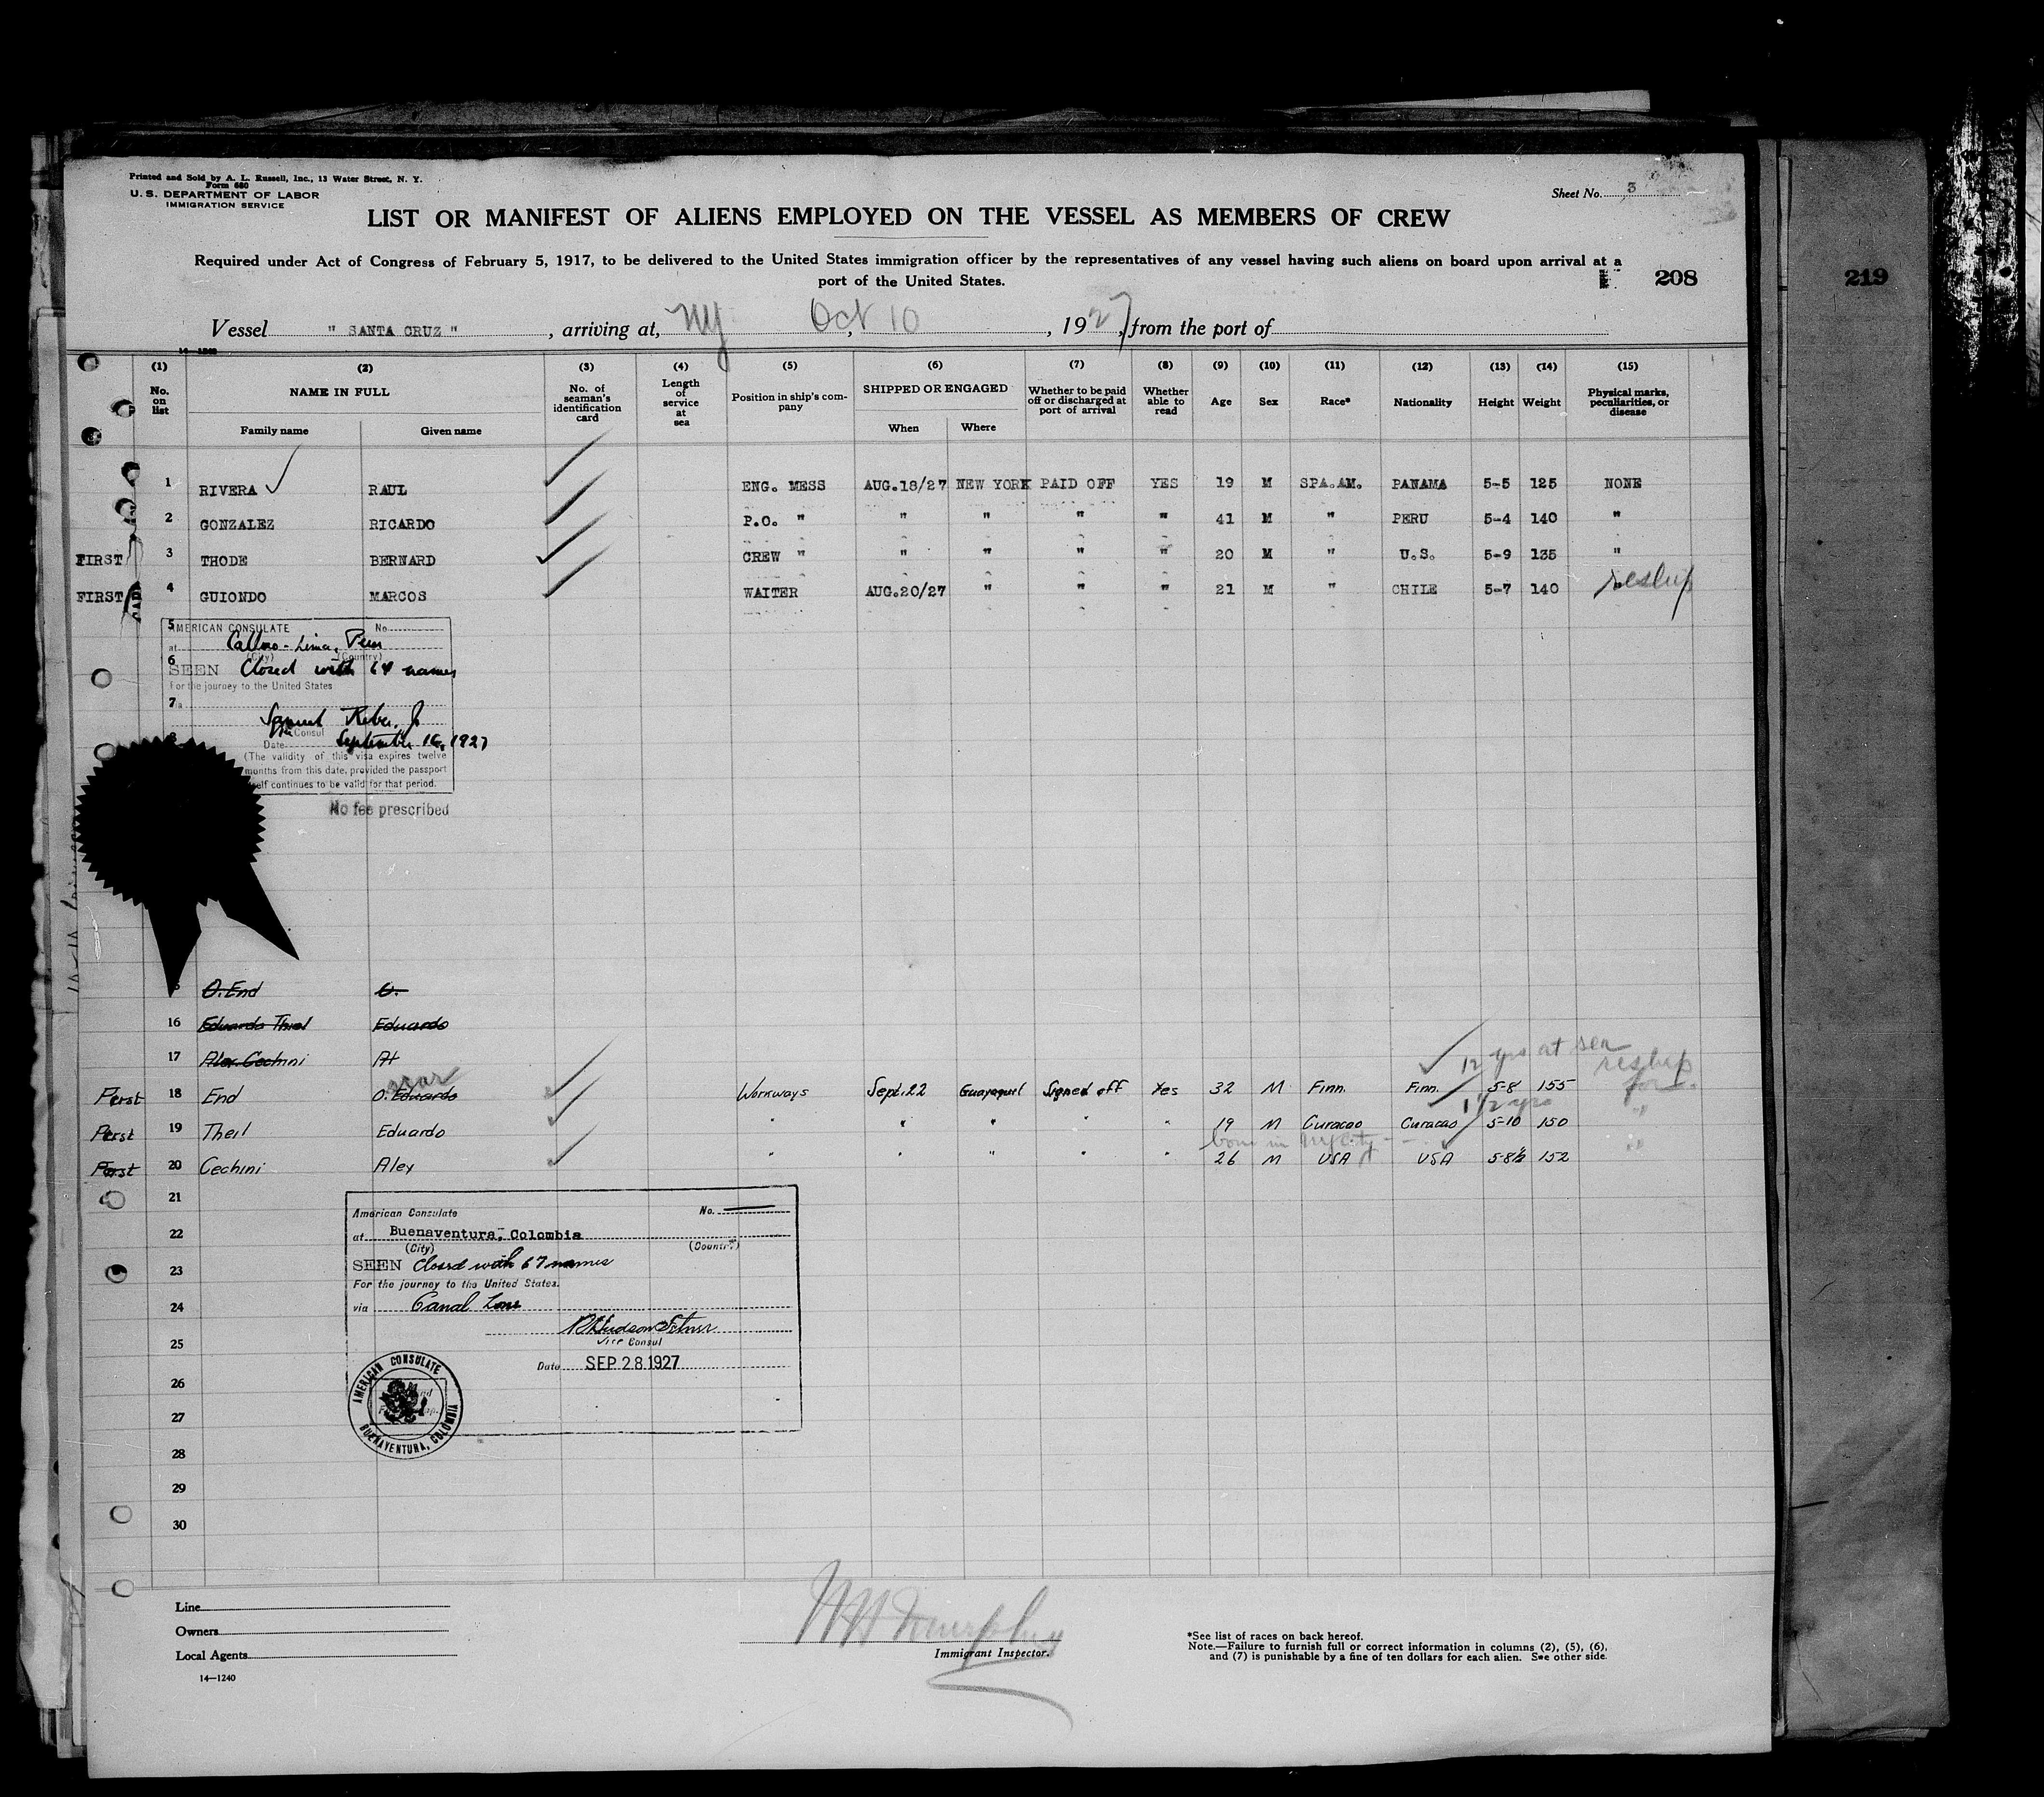 Printed and Sold by A. L. Russell, Inc., 13 Water Street, N. Y.
Form 680
U. S. DEPARTMENT OF LABOR
IMMIGRATION SERVICE
Sheet No. 3
LIST OR MANIFEST OF ALIENS EMPLOYED ON THE VESSEL AS MEMBERS OF CREW
Required under Act of Congress of February 5, 1917, to be delivered to the United States immigration officer by the representatives of any vessel having such aliens on board upon arrival at a
port of the United States.
208
219
Vessel " SANTA CRUZ " , arriving at, NY Oct 10 , 1927, from the port of
14—1240
(1) (2) (3) (4) (5) (6) (7) (8) (9) (10) (11) (12) (13) (14) (15)
No. on list NAME IN FULL Family name Given name No. of seaman's identification card Length of service at sea Position in ship's company SHIPPED OR ENGAGED When Where Whether to be paid off or discharged at port of arrival Whether able to read Age Sex Race* Nationality Height Weight Physical marks, peculiarities, or disease
1 RIVERA RAUL ENG. MESS AUG.18/27 NEW YORK PAID OFF YES 19 M SPA.AM. PANAMA 5-5 125 NONE
2 GONZALEZ RICARDO P.O. " " " " " 41 M " PERU 5-4 140 "
FIRST 3 THODE BERNARD CREW " " " " " 20 M " U.S. 5-9 135 "
FIRST 4 GUIONDO MARCOS WAITER AUG.20/27 " " " 21 M " CHILE 5-7 140 reship
5 AMERICAN CONSULATE No.
at Callao-Lima, Peru
(City) (Country)
6 SEEN Closed with 64 names
For the journey to the United States
7
Samuel Reber, Jr
Consul
8 Date September 16, 1927
(The validity of this visa expires twelve
months from this date, provided the passport
self continues to be valid for that period.
No fee prescribed
O. End O.
16 Eduardo Thiel Eduardo
17 Alex Cechini Al
12 yrs at sea
reship
Oscar
First 18 End O. Eduardo Workways Sept.22 Guayaquil Signed off Yes 32 M Finn. Finn. 5-8 155
1 1/2 yrs
First 19 Theil Eduardo " " " " " 19 M Curacao Curacao 5-10 150 "
born in NY City
First 20 Cechini Alex " " " " " 26 M USA USA 5-8½ 152 "
21
American Consulate No.
22 at Buenaventura, Colombia
(City) (Country)
23 SEEN Closed with 67 names
For the journey to the United States.
24 via Canal Zone
25 Vice Consul
Date SEP 28 1927
26
27
AMERICAN CONSULATE
BUENAVENTURA, COLOMBIA
28
29
30
Line
Owners
Local Agents
14—1240
Murphy
Immigrant Inspector.
*See list of races on back hereof.
Note.—Failure to furnish full or correct information in columns (2), (5), (6),
and (7) is punishable by a fine of ten dollars for each alien. See other side.